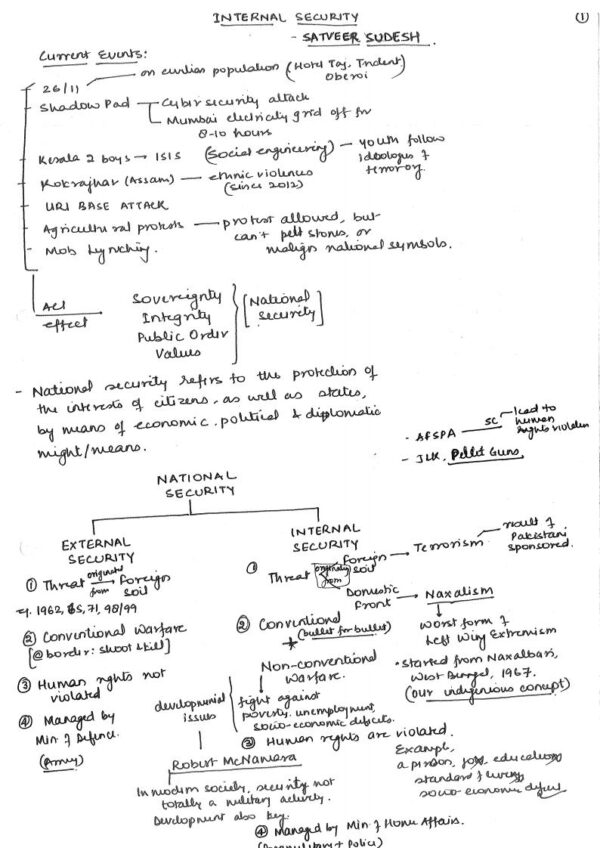 INTERNAL SECURITY
①
- SATVEER SUDESH.
Current Events:
26/11 — on civilian population (Hotel Taj, Trident, Oberoi)
Shadow Pad — Cyber security attack
Mumbai electricity grid off for
8-10 hours
Kerala 2 boys → ISIS (Social engineering) — youth follow
ideologies of
terror org.
Kokrajhar (Assam) — ethnic violences
(since 2012)
URI BASE ATTACK
Agricultural protests — protest allowed, but
can't pelt stones, or
malign national symbols.
Mob Lynching.
Act
effect
Sovereignty
Integrity
Public Order
Values
[National
Security]
- National security refers to the protection of
the interests of citizens, as well as states,
by means of economic, political & diplomatic
might/means.
- AFSPA SC lead to
human
rights violation
- J&K, Pellet Guns
NATIONAL
SECURITY
EXTERNAL
SECURITY
① Threat originated from → Foreign
soil
eg. 1962, 65, 71, 98/99
② Conventional Warfare
[@border: shoot & kill]
③ Human rights not
violated
④ Managed by
Min of Defence.
(Army)
INTERNAL
SECURITY
① Threat originating from
Foreign soil → Terrorism
result of
Pakistani
sponsored.
Domestic
front → Naxalism
Worst form of
Left Wing Extremism
• Started from Naxalbari,
West Bengal, 1967.
(our indigenious concept)
② Conventional
(bullet for bullet)
Non-conventional
Warfare.
developmental
issues
fight against
poverty, unemployment,
socio-economic deficits.
Robert McNamara
In modern society, security not
totally a military activity.
Development also key.
③ Human rights are violated.
Example,
a person, job, education,
standard of living
socio-economic deficit
④ Managed by Min of Home Affairs.
(Paramilitary + Police)